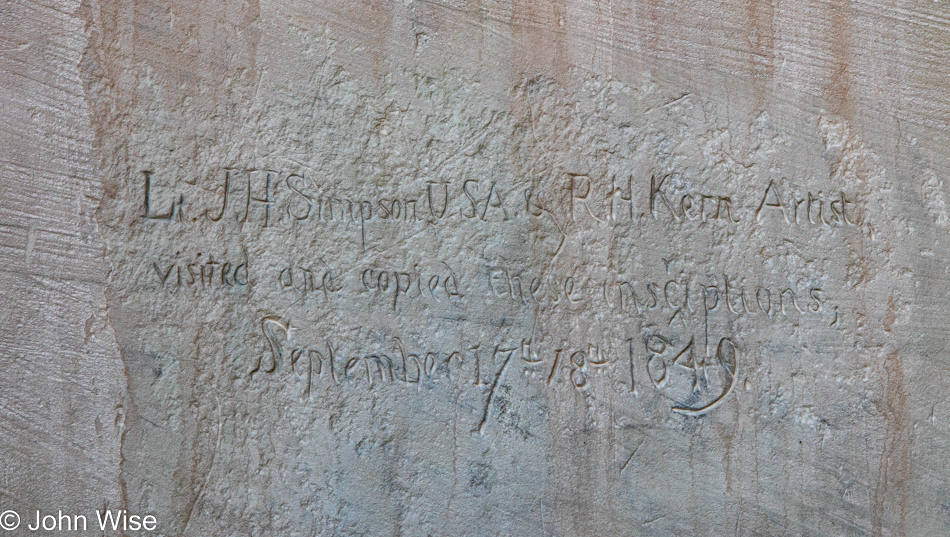 Lt. J.H. Simpson U.S.A. & R.H. Kern Artist,
visited and copied these insciptions,
September 17th 18th 1849.
© John Wise